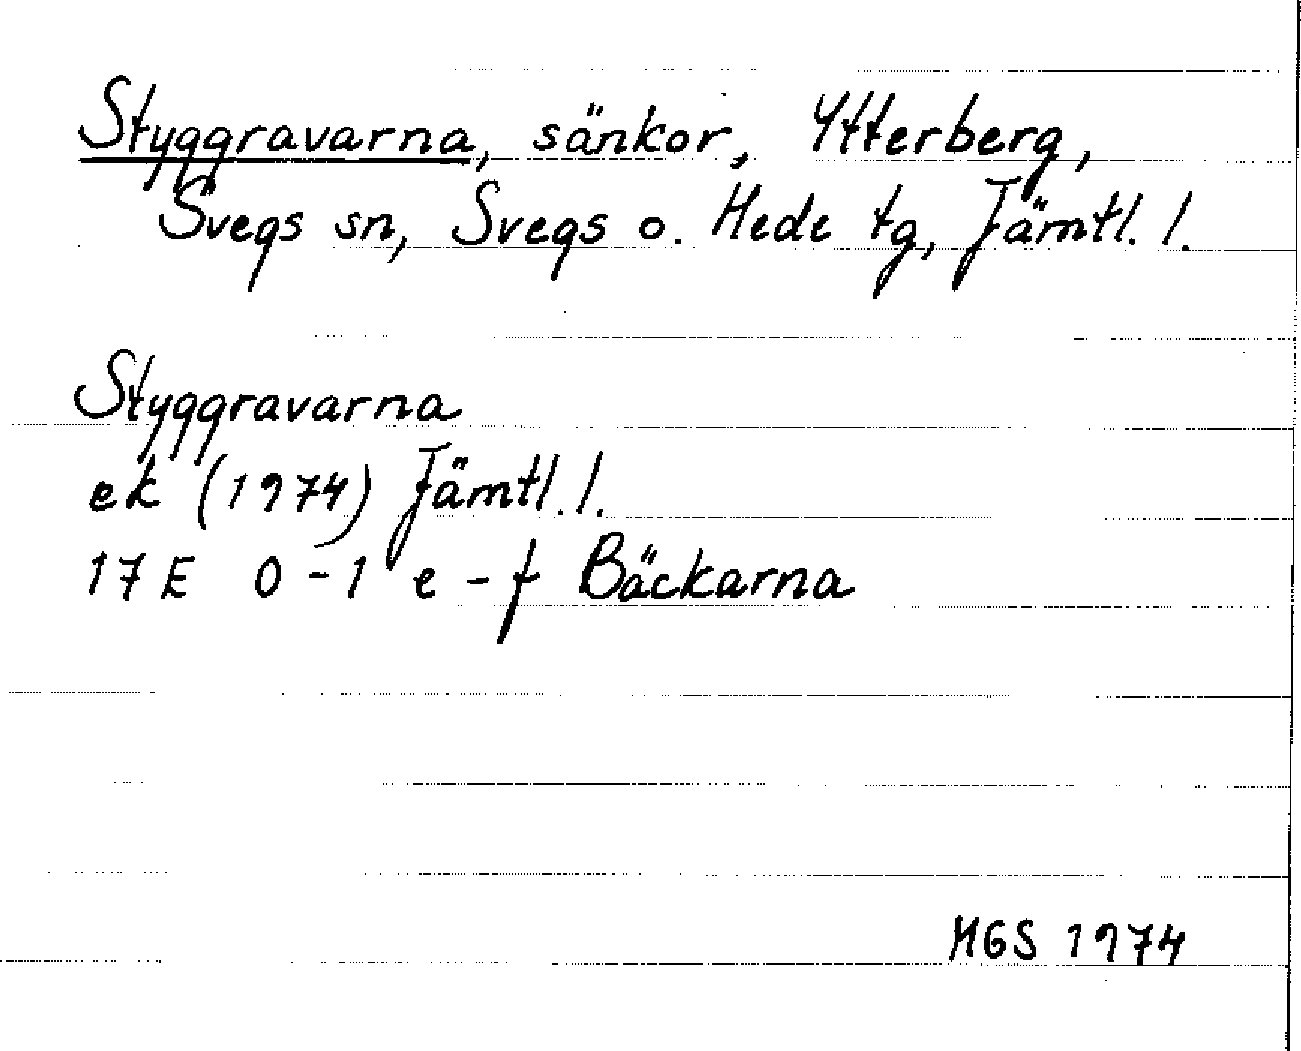 Styggravarna, sänkor, Ytterberg,
Svegs sn, Svegs o. Hede tg, Jämtl. l.
Styggravarna
ek (1974) Jämtl. l.
17E 0-1 e-f Bäckarna
MGS 1974